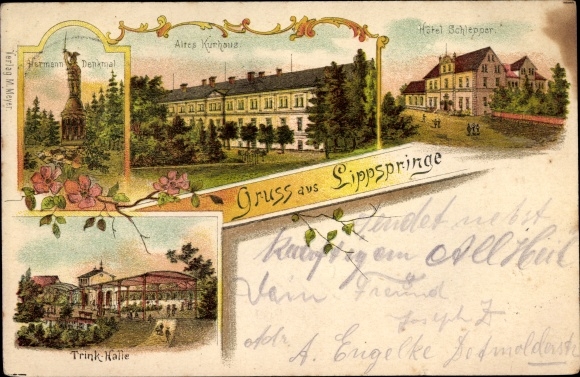 Verlag W. Meyer.
Hermann Denkmal
Altes Kurhaus
Hôtel Schlepper.
Gruss aus Lippspringe
Trink-Halle
sendet nebst
All Heil
Dein Freund
Joseph Z
Adr. A. Engelke Detmolderstr